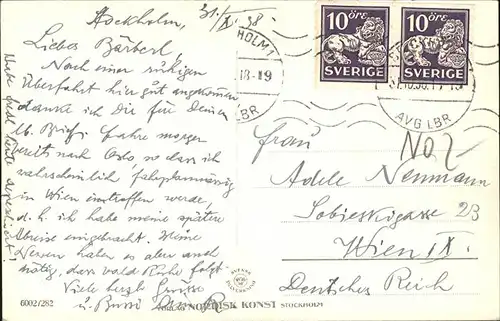 Stockholm, 31./X. 38.
Liebes Bärberl!
Nach einer ruhigen
Überfahrt hier gut angekommen
danke ich Dir für Deinen
lb. Brief. Fahre morgen
bereits nach Oslo, so dass ich
wahrscheinlich fahrplanmässig
in Wien eintreffen werde,
d. h. ich habe meine spätere
Abreise eingebracht. Meine
Nerven haben es aber auch
nötig, dass bald Ruhe folgt.
Viele herzl. Grüsse
u. Bussi
Karte deponiert!
6002/282
10 ÖRE
SVERIGE
10 ÖRE
SVERIGE
HOLM 1
18-19
LBR
AVG LBR
No 2
Frau
Adele Neumann
Sobieskigasse 23
Wien IX.
Deutsches Reich
NORDISK KONST STOCKHOLM